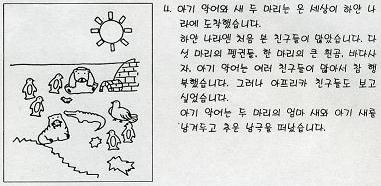 4. 아기 악어와 새 두 마리는 온 세상이 하얀 나
라에 도착했습니다.
하얀 나라엔 처음 본 친구들이 많았습니다. 다
섯 마리의 펭귄들, 한 마리의 큰 흰곰, 바다사
자. 아기 악어는 여러 친구들이 많아서 참 행
복했습니다. 그러나 아프리카 친구들도 보고
싶었습니다.
아기 악어는 두 마리의 엄마 새와 아기 새를
남겨두고 추운 남극을 떠났습니다.